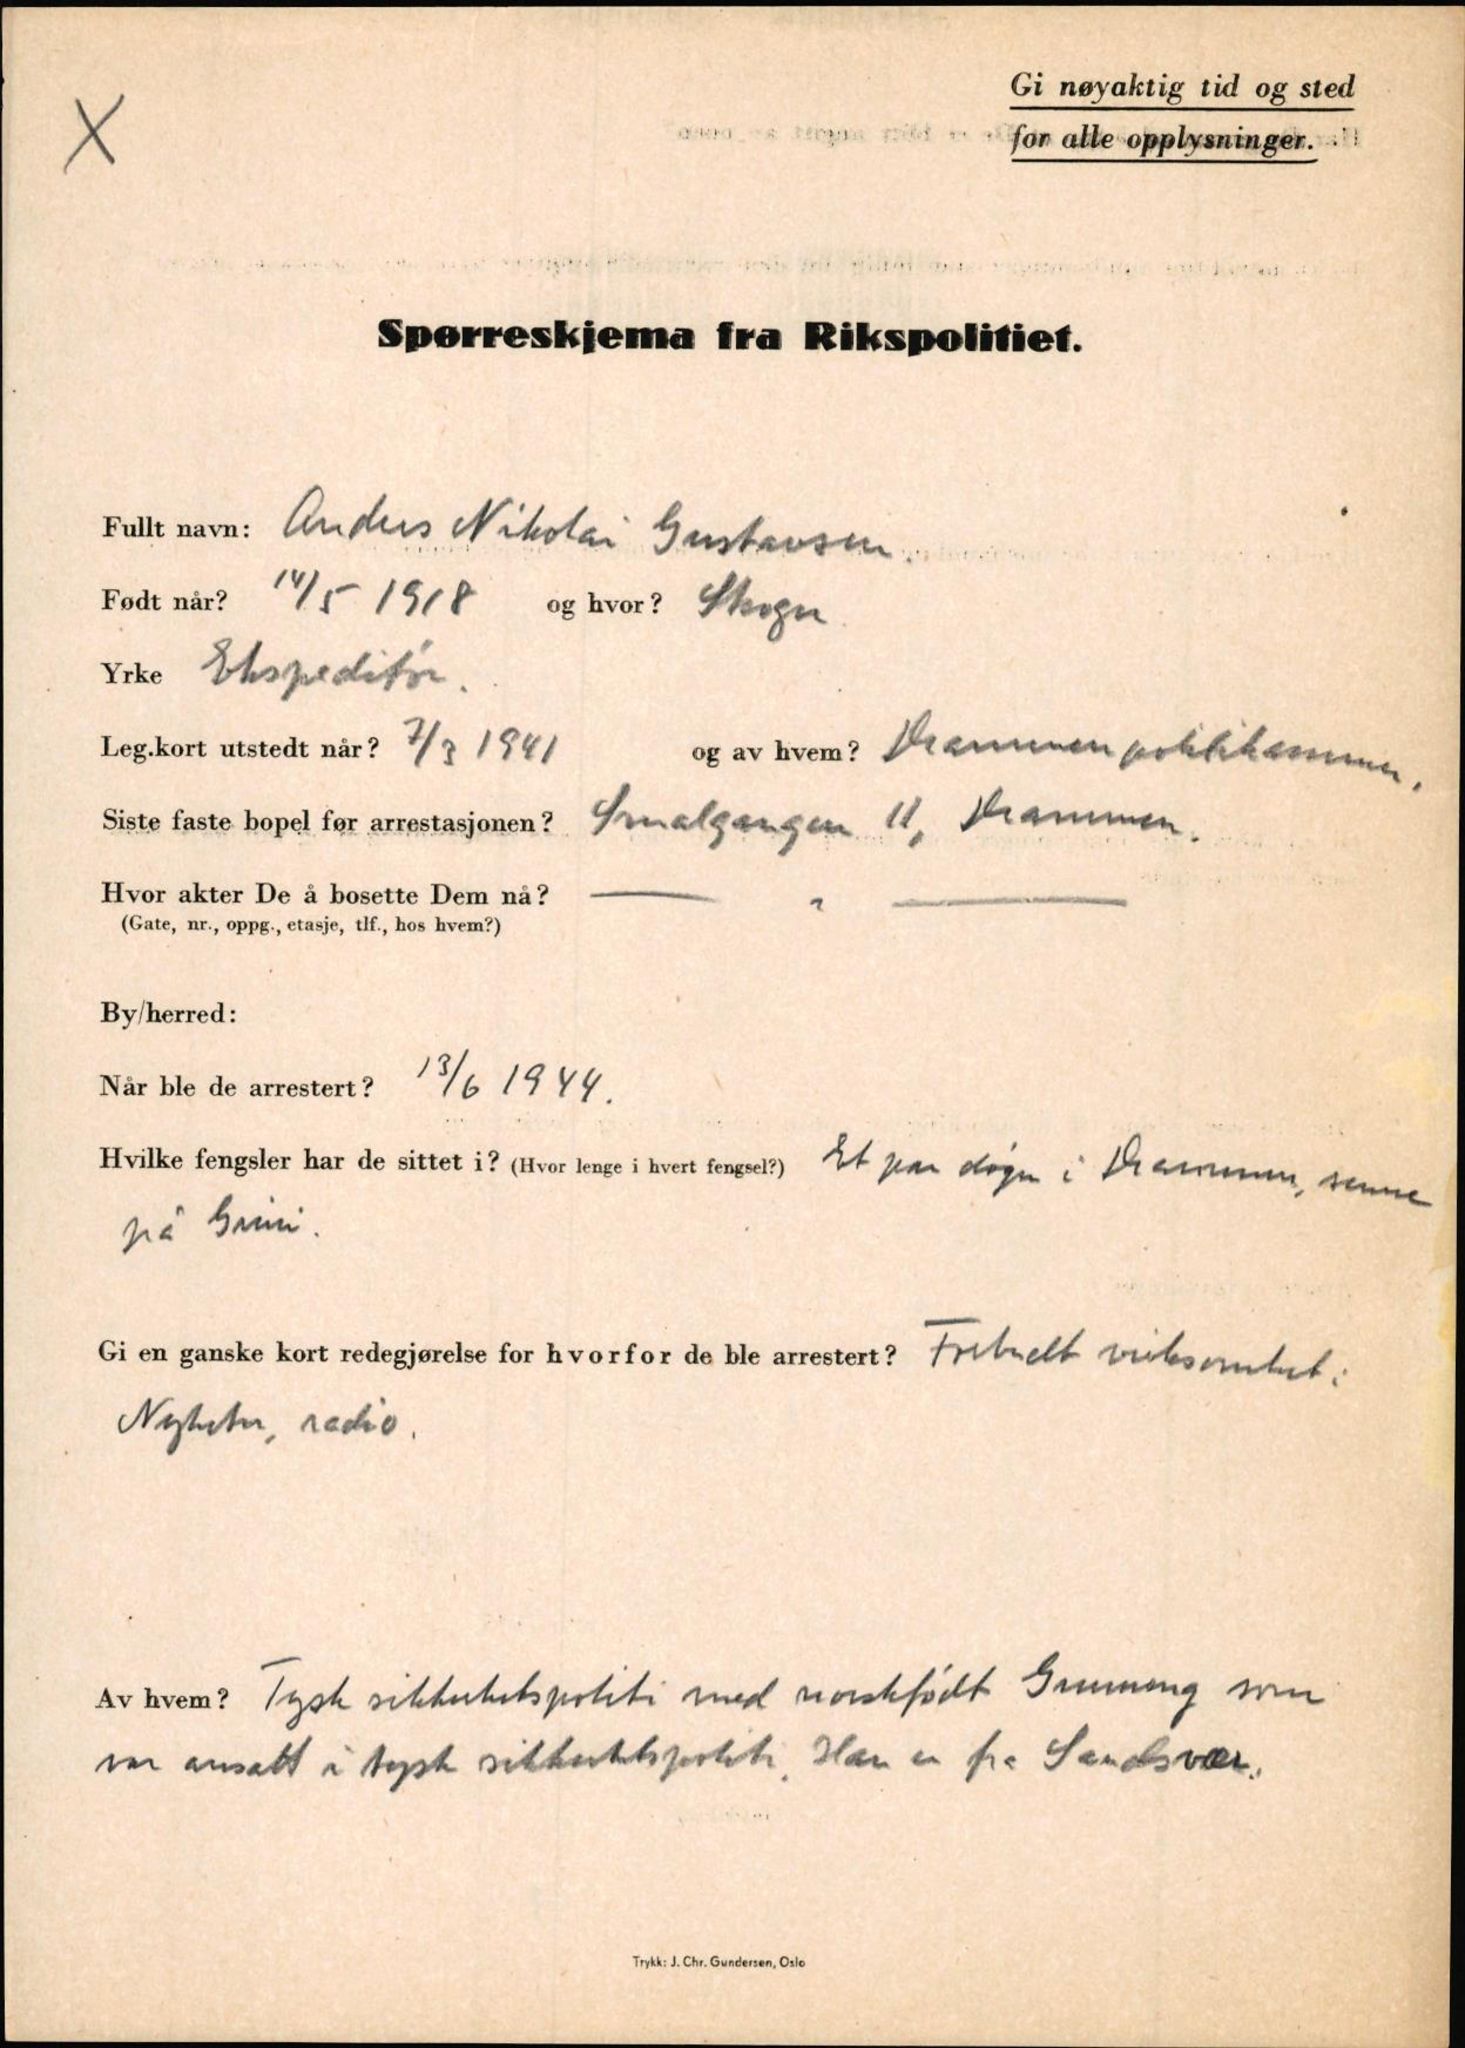 X
Gi nøyaktig tid og sted
for alle opplysninger.
Spørreskjema fra Rikspolitiet.
Fullt navn: Anders Nikolai Gustavsen.
Født når? 14/5 1918 og hvor? Skoger
Yrke Ekspeditør.
Leg.kort utstedt når? 7/3 1941 og av hvem? Drammen politikammer.
Siste faste bopel før arrestasjonen? Smalgangen 11, Drammen.
Hvor akter De å bosette Dem nå? — " —
(Gate, nr., oppg., etasje, tlf., hos hvem?)
By/herred:
Når ble de arrestert? 13/6 1944.
Hvilke fengsler har de sittet i? (Hvor lenge i hvert fengsel?) Et par døgn i Drammen, senere
på Grini.
Gi en ganske kort redegjørelse for hvorfor de ble arrestert? Forbudt virksomhet:
Nyheter, radio.
Av hvem? Tysk sikkerhetspoliti med norskfødt som
var ansatt i tysk sikkerhetspoliti. Han er fra Sandsvær.
Trykk: J. Chr. Gundersen, Oslo